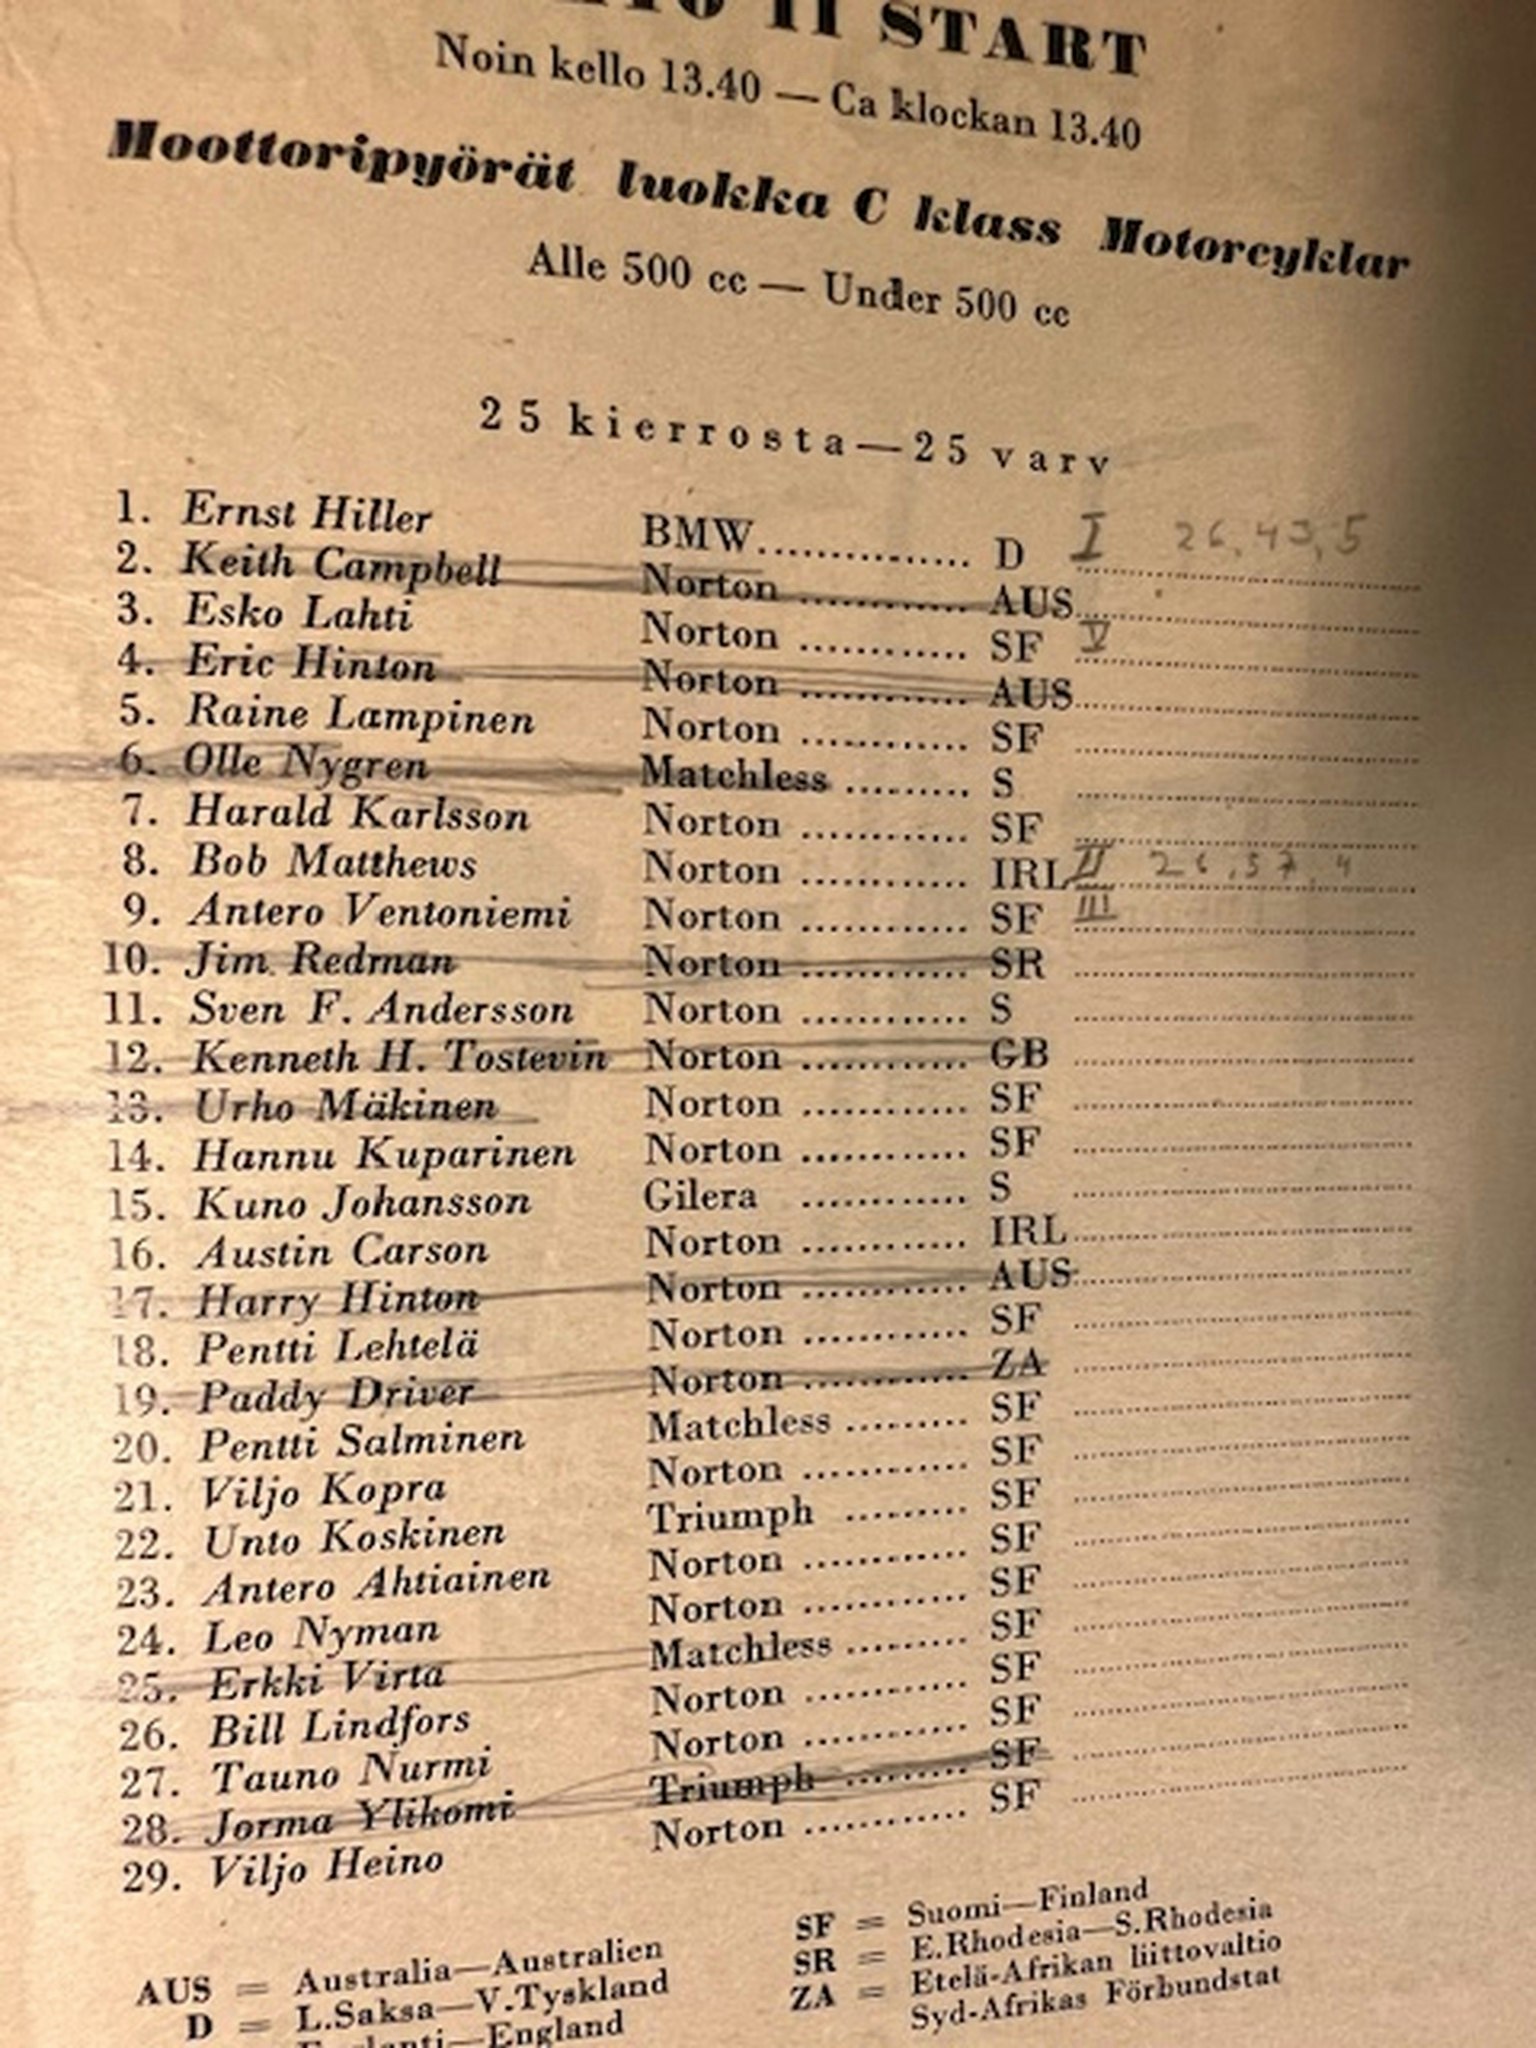 II START
Noin kello 13.40 — Ca klockan 13.40
Moottoripyörät luokka C klass Motorcyklar
Alle 500 cc — Under 500 cc
25 kierrosta—25 varv
1. Ernst Hiller BMW.............. D I 26,43,5
2. Keith Campbell Norton ............ AUS
3. Esko Lahti Norton ............ SF V
4. Eric Hinton Norton ............ AUS
5. Raine Lampinen Norton ............ SF
6. Olle Nygren Matchless ......... S
7. Harald Karlsson Norton ............ SF
8. Bob Matthews Norton ............ IRL II 26,57,4
9. Antero Ventoniemi Norton ............ SF III
10. Jim Redman Norton ............ SR
11. Sven F. Andersson Norton ............ S
12. Kenneth H. Tostevin Norton ............ GB
13. Urho Mäkinen Norton ............ SF
14. Hannu Kuparinen Norton ............ SF
15. Kuno Johansson Gilera ............ S
16. Austin Carson Norton ............ IRL
17. Harry Hinton Norton ............ AUS
18. Pentti Lehtelä Norton ............ SF
19. Paddy Driver Norton ............ ZA
20. Pentti Salminen Matchless ......... SF
21. Viljo Kopra Norton ............ SF
22. Unto Koskinen Triumph ......... SF
23. Antero Ahtiainen Norton ............ SF
24. Leo Nyman Norton ............ SF
25. Erkki Virta Matchless ......... SF
26. Bill Lindfors Norton ............ SF
27. Tauno Nurmi Norton ............ SF
28. Jorma Ylikomi Triumph ......... SF
29. Viljo Heino Norton ............ SF
AUS = Australia—Australien
D = L.Saksa—V.Tyskland
England
SF = Suomi—Finland
SR = E.Rhodesia—S.Rhodesia
ZA = Etelä-Afrikan liittovaltio
Syd-Afrikas Förbundstat